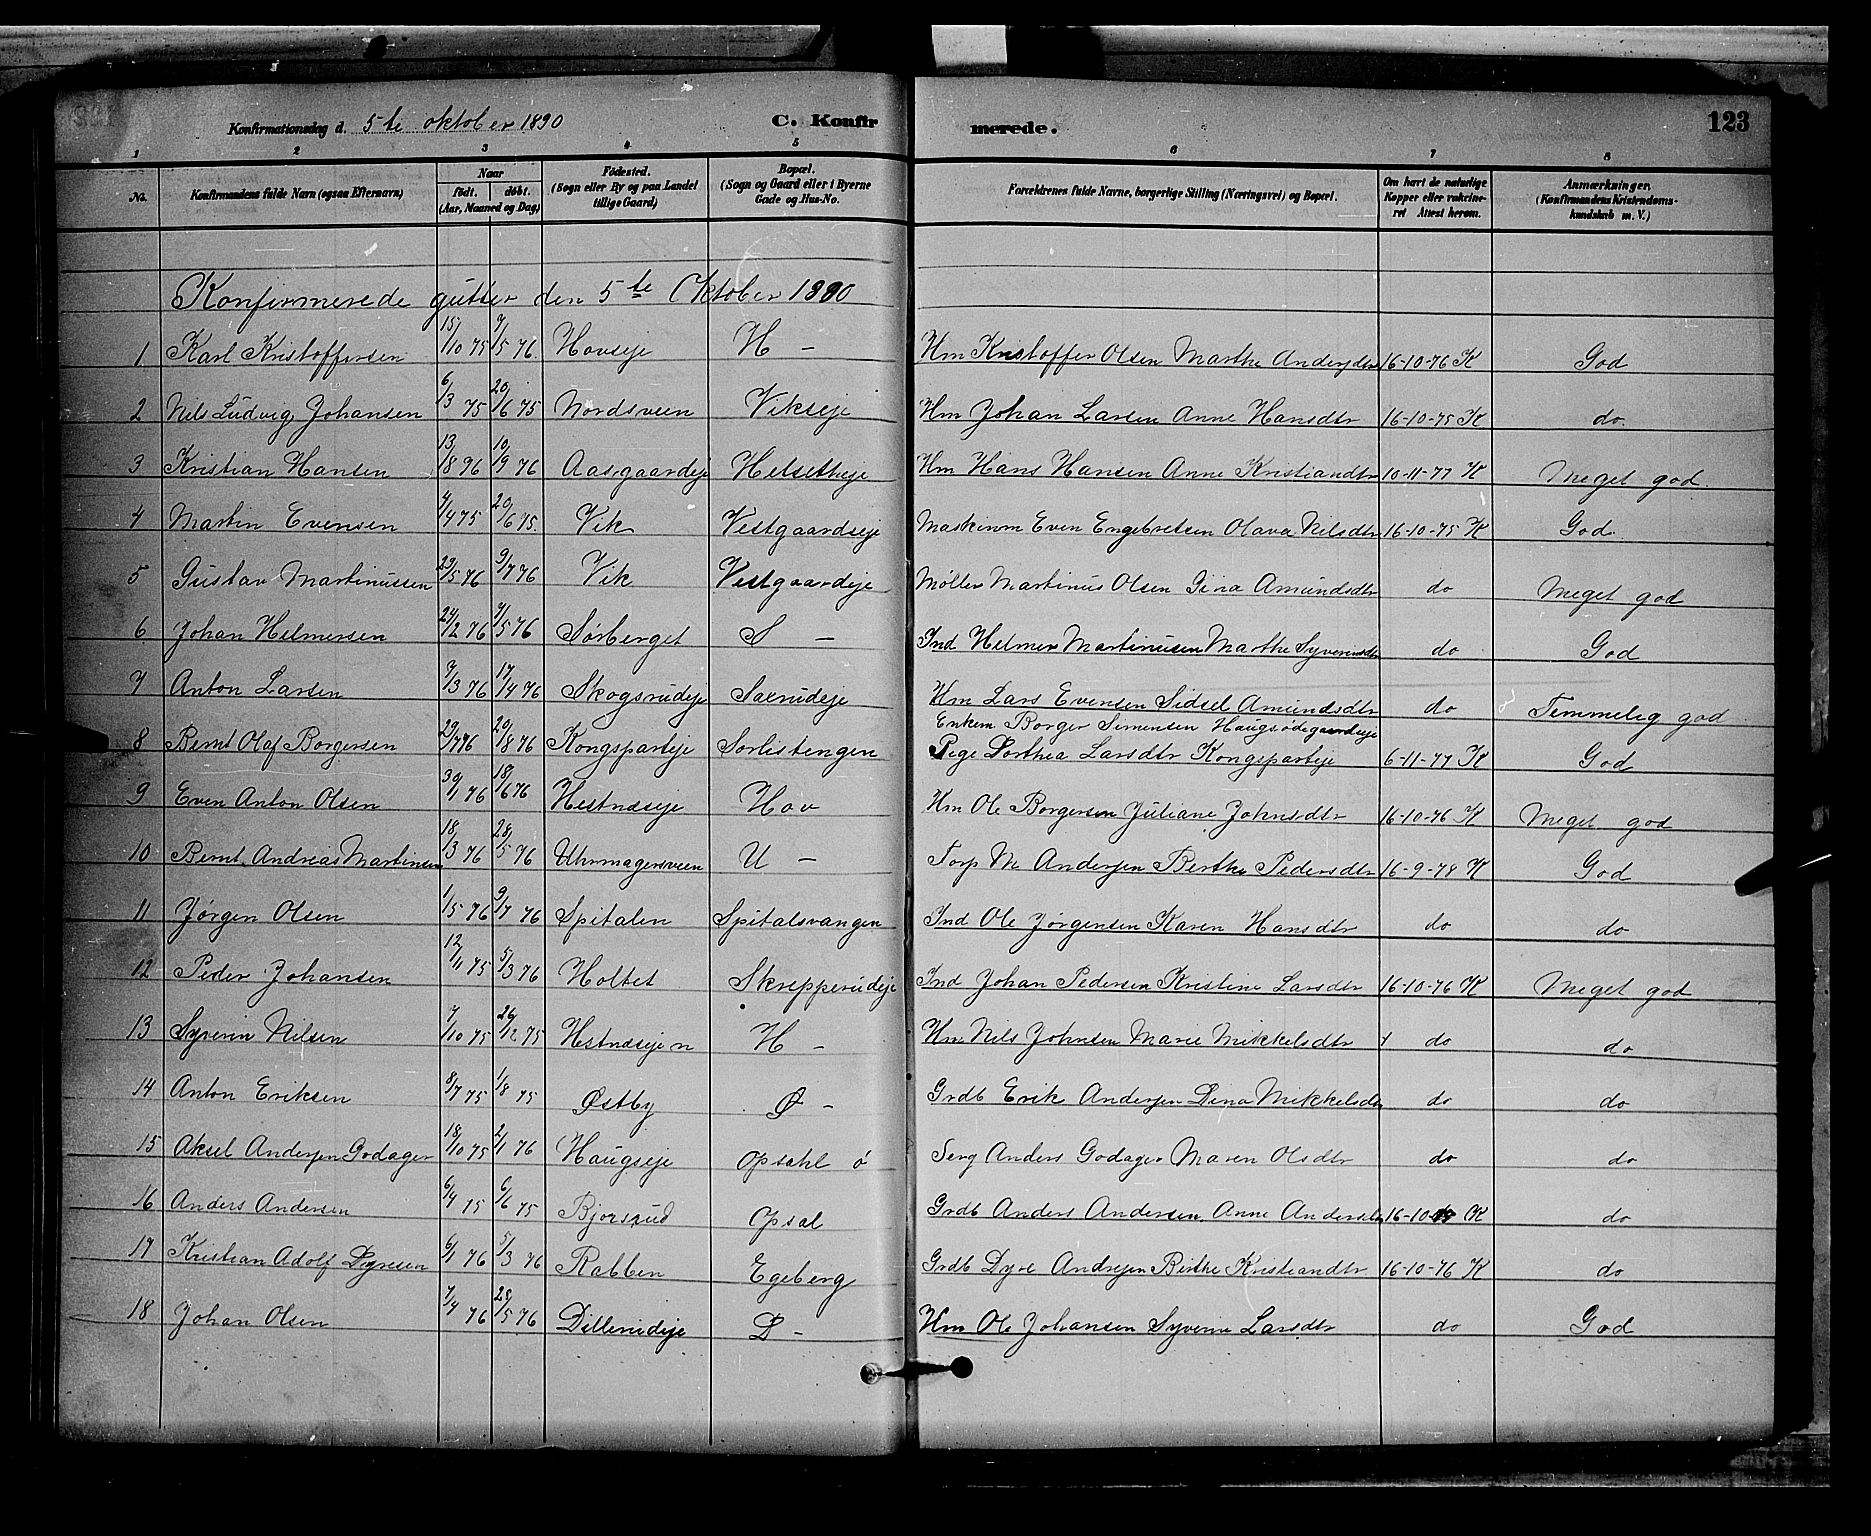 Konfirmationsdag d. 5te oktober 1890 C. Konfirmerede. 123
1 2 3 4 5 6 7 8
No. Konfirmandens fulde Navn (ogsaa Efternavn) Naar født. døbt. (Aar, Maaned og Dag) Fødested. (Sogn eller By og paa Landet tillige Gaard) Bopæl. (Sogn og Gaard eller i Byerne Gade og Hus-No. Forældrenes fulde Navne, borgerlige Stilling (Næringsvei) og Bopæl. Om havt de naturlige Kopper eller vakcineret Attest herom. Anmærkninger. (Konfirmandens Kristendomskundskab m. V.)
Konfirmerede gutter den 5te Oktober 1890
1 Karl Kristoffersen 15/10 75 7/5 76. Hovseje H – Hm Kristoffer Olsen Marthe Andersdtr 16-10-76 K God
2 Nils Ludvig Johansen 6/3 75 20/6 75 Nordsveen Vikseje Hm Johan Larsen Anne Hansdtr 16-10-75 K do.
3 Kristian Hansen 13/8 96 10/9 76 Aasgaardeje Helsetheje Hm Hans Hansen Anne Kristiandtr 10-11-77 K Meget god
4 Martin Evensen 4/4 75 20/6 75. Vik Vestgaardseje Maskinm Even Engebretsen Olava Nilsdtr 16-10-75 K God
5 Gustav Martinussen 23/5 76 9/7 76 Vik Vestgaardeje Møller Martinus Olsen Gina Amundsdtr do Meget god
6 Johan Helmersen 24/2 76 7/5 76 Sørberget S – Ind Helmer Martinusen Marthe Syverinsdtr do God
7 Anton Larsen 7/3 76 17/4 76 Skogsrudeje Saxrudeje Hm Lars Evensen Sidsel Amundsdtr do Temmelig god
Enkem Borger Simensen Haugsødegaardseje
8 Bernt Olaf Borgersen 29/7 76 20/8 76 Kongsparteje Sorlistengen Pige Dorthea Larsdtr Kongsparteje 6-11-77 K God
9 Even Anton Olsen 30/1 76 18/6 76 Hestnæseje Hov Hm Ole Borgersen Juliane Johnsdtr 16-10-76 K Meget god
10 Bernt Andreas Martinsen 18/3 76 28/5 76 Uhrmagersveen U – Torp M Andersen Berthe Pedersdtr 16-9-78 K God
11 Jørgen Olsen 1/5 76 9/7 76 Spitalen Spitalsvangen Ind Ole Jørgensen Karen Hansdtr do do
12 Peder Johansen 12/11 75 5/3 76 Holtet Skrepperudeje Ind Johan Pedersen Kristine Larsdtr 16-10-76 K Meget god
13 Syverin Nilsen 7/10 75 26/12 75 Hestnæseje n H – Hm Nils Johnsen Marie Mikkelsdtr do do
14 Anton Eriksen 8/7 75 1/8 75 Østby Ø – Grdb Erik Andersen Dina Mikkelsdtr do do
15 Aksel Andersen Godager 18/10 75 2/1 76 Haugseje Opsahl ø Serg Anders Godager Maren Olsdtr do do
16 Anders Andersen 6/4 75 6/6 75 Bjorsrud Opsal Grdb Anders Andersen Anne Andersdtr 16-10- K do
17 Kristian Adolf Dyresen 6/1 76 5/3 76 Rabben Egeberg Grdb Dyre Andersen Birthe Kristiandtr 16-10-76 K do
18 Johan Olsen 7/4 76 28/5 76 Dillerudeje D – Hm Ole Johansen Syverine Larsdtr do God